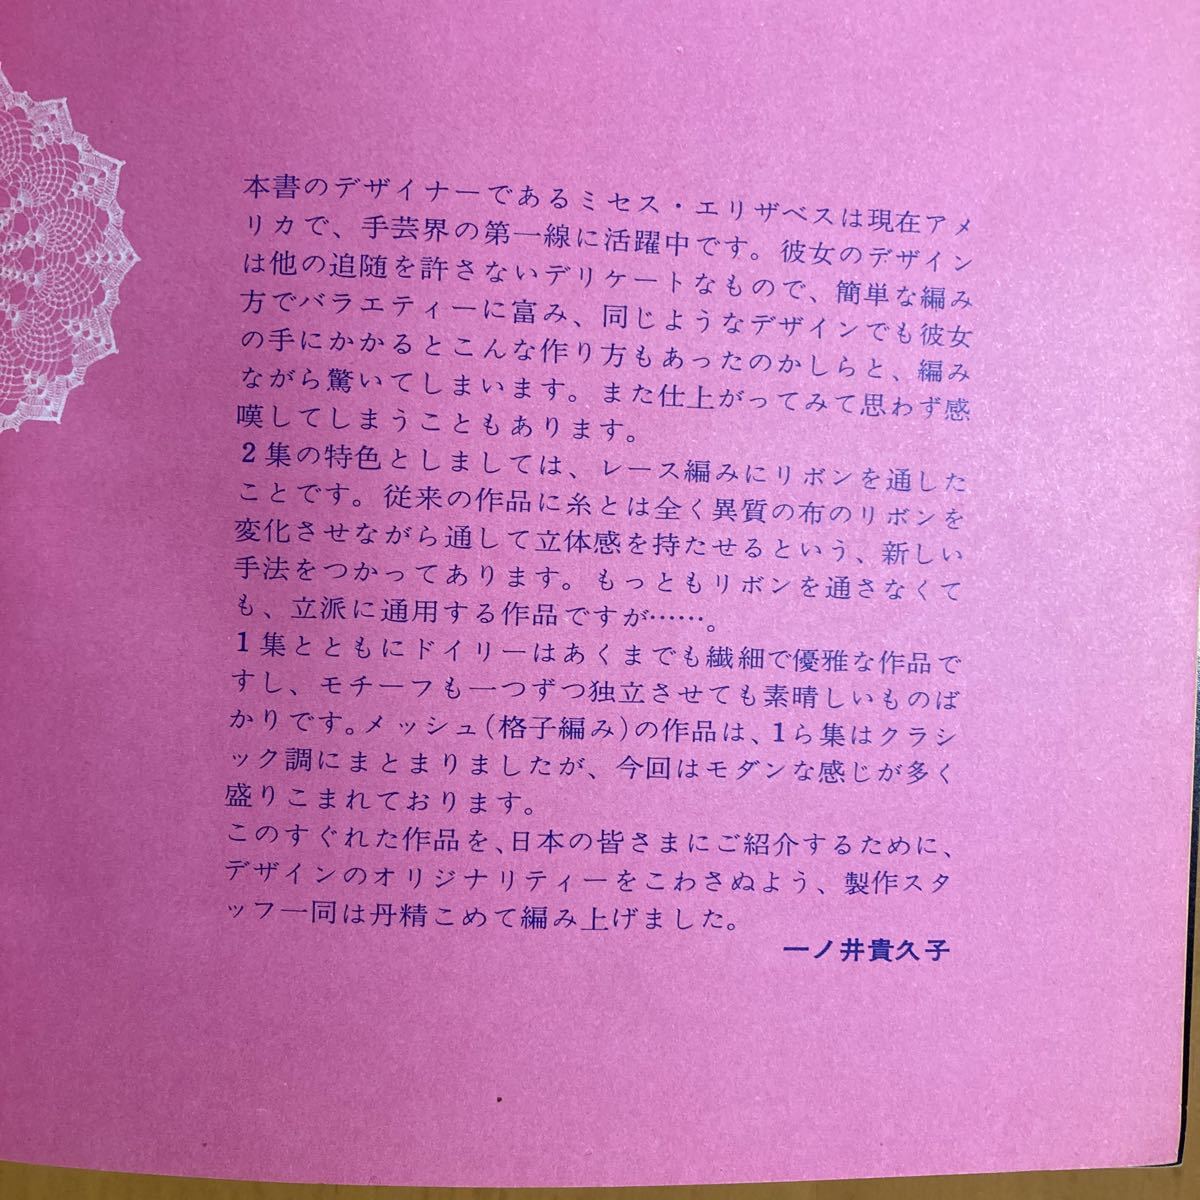 本書のデザイナーであるミセス・エリザベスは現在アメ
リカで、手芸界の第一線に活躍中です。彼女のデザイン
は他の追随を許さないデリケートなもので、簡単な編み
方でバラエティーに富み、同じようなデザインでも彼女
の手にかかるとこんな作り方もあったのかしらと、編み
ながら驚いてしまいます。また仕上がってみて思わず感
嘆してしまうこともあります。
2集の特色としましては、レース編みにリボンを通した
ことです。従来の作品に糸とは全く異質の布のリボンを
変化させながら通して立体感を持たせるという、新しい
手法をつかってあります。もっともリボンを通さなくて
も、立派に通用する作品ですが……。
1集とともにドイリーはあくまでも繊細で優雅な作品で
すし、モチーフも一つずつ独立させても素晴しいものば
かりです。メッシュ(格子編み)の作品は、1ら集はクラシ
ック調にまとまりましたが、今回はモダンな感じが多く
盛りこまれております。
このすぐれた作品を、日本の皆さまにご紹介するために、
デザインのオリジナリティーをこわさぬよう、製作スタ
ッフ一同は丹精こめて編み上げました。
一ノ井貴久子